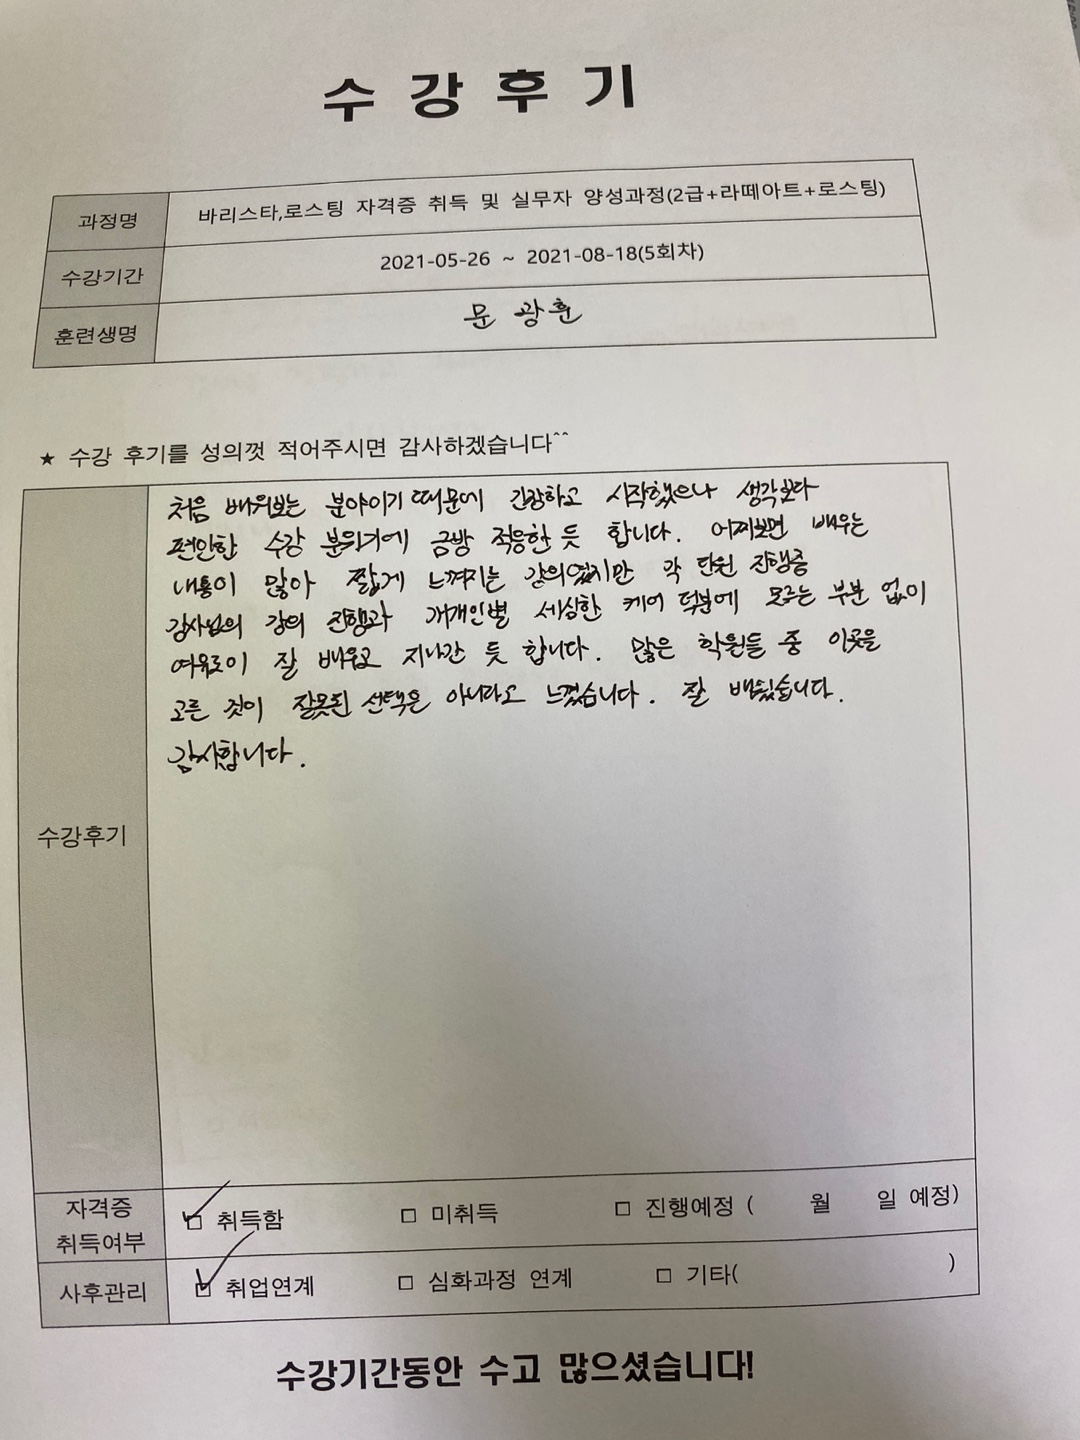 수강후기
과정명 바리스타,로스팅 자격증 취득 및 실무자 양성과정(2급+라떼아트+로스팅)
수강기간 2021-05-26 ~ 2021-08-18(5회차)
훈련생명 문 광훈
★ 수강 후기를 성의껏 적어주시면 감사하겠습니다^^
처음 배워보는 분야이기 때문에 긴장하고 시작했으나 생각보다
편안한 수강 분위기에 금방 적응한 듯 합니다. 어찌보면 배우는
내용이 많아 짧게 느껴지는 강의였지만 각 단원 진행중
강사님의 강의 진행과 개개인별 세심한 케어 덕분에 모르는 부분 없이
여유로이 잘 배우고 지나간 듯 합니다. 많은 학원들 중 이곳을
고른 것이 잘못된 선택은 아니라고 느꼈습니다. 잘 배웠습니다.
감사합니다.
수강후기
자격증 취득여부 ☑ 취득함 □ 미취득 □ 진행예정 ( 월 일 예정)
사후관리 ☑ 취업연계 □ 심화과정 연계 □ 기타( )
수강기간동안 수고 많으셨습니다!